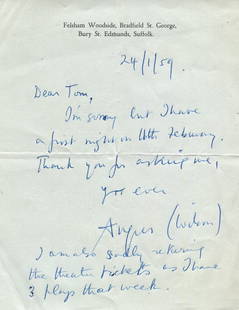 Felsham Woodside, Bradfield St. George,
Bury St. Edmunds, Suffolk.
24/1/59.
Dear Tom,
I'm sorry but I have
a first night on 11th February.
Thank you for asking me,
yrs ever
Angus (Wilson)
I am also sadly returning
the theatre tickets as I have
3 plays that week.